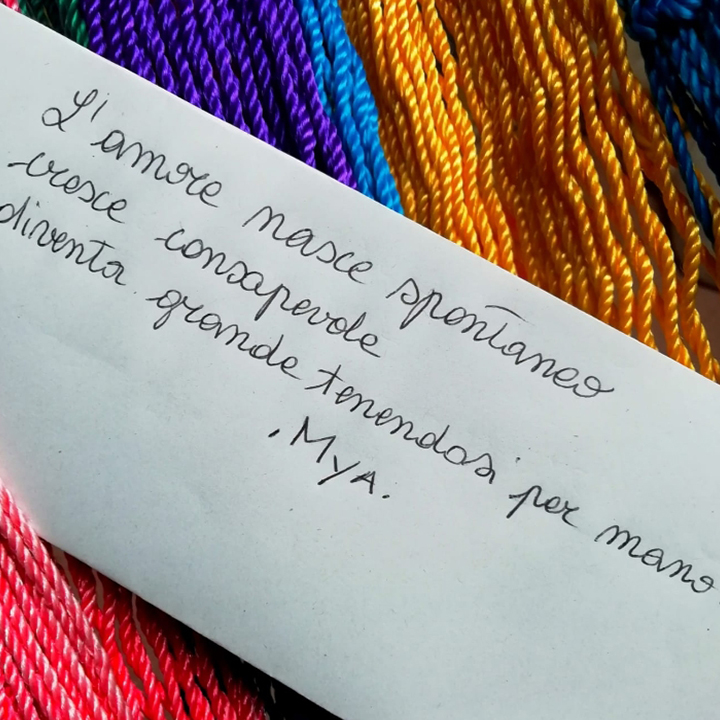 L'amore nasce spontaneo
cresce consapevole
diventa grande tenendosi per mano
. Mya.